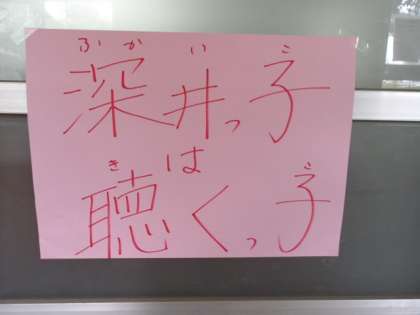 ふかい こ
深井っ子
は
き こ
聴くっ子